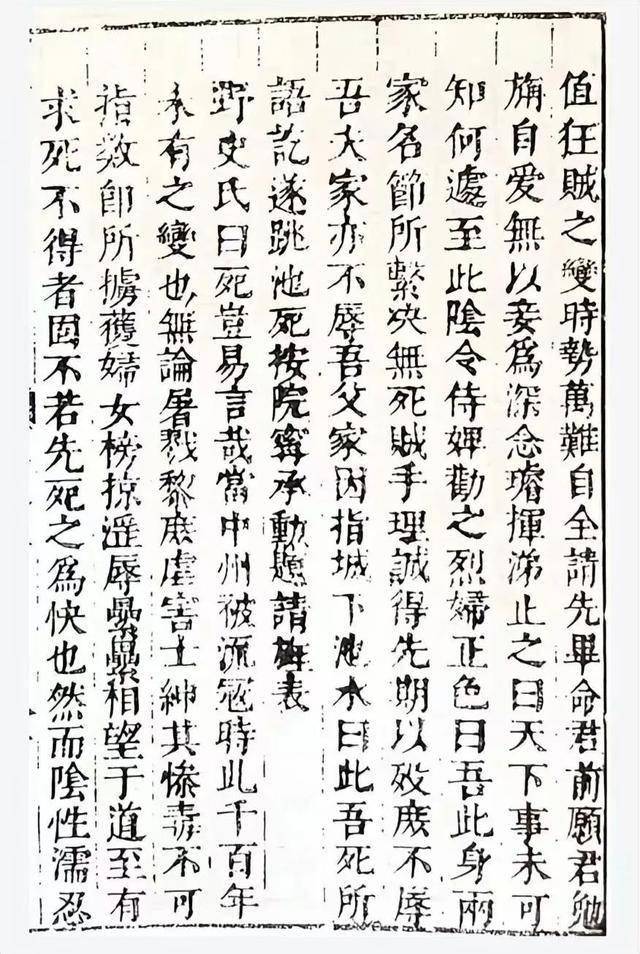 值狂賊之變時勢萬難自全請先畢命君前願君勉
旃自愛無以妾爲深念璿揮涕止之曰天下事未可
知何遽至此陰令侍婢勸之烈婦正色曰吾此身兩
家名節所繫决無死賊手理誠得先期以死庶不辱
吾夫家亦不辱吾父家因指城下池水曰此吾死所
語訖遂跳池死按院甯承勳題請旌表
野史氏曰死豈易言哉當中州被流寇時此千百年
未有之變也無論屠戮黎庶虐害士紳其慘毒不可
指數即所擄獲婦女榜掠淫辱纍纍相望于道至有
求死不得者固不若先死之爲快也然而陰性濡忍